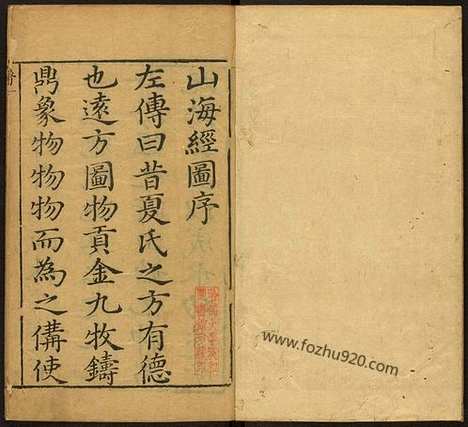 山海經圖序
左傳曰昔夏氏之方有德
也遠方圖物貢金九牧鑄
鼎象物物物而為之備使
www.fozhu920.com